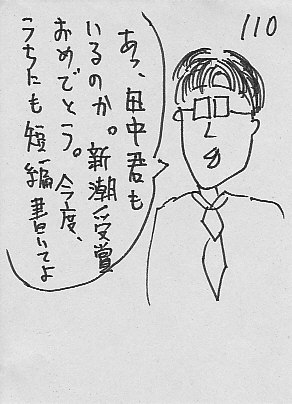 110
あっ、田中君も
いるのか。新潮受賞
おめでとう。今度、
うちにも短編書いてよ